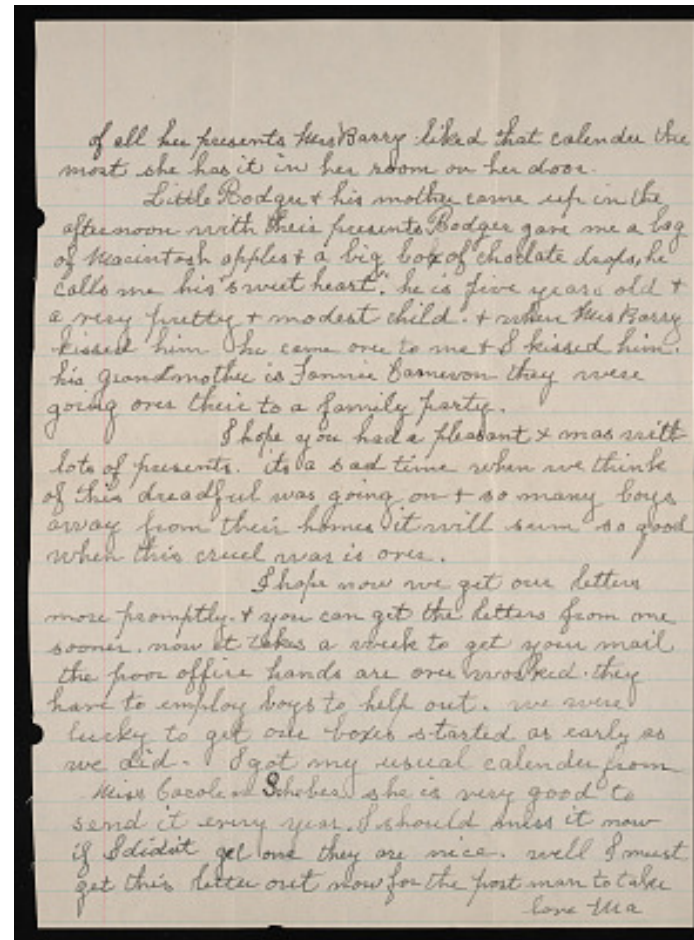 of all her presents Mrs Barry liked that calender the
most she has it in her room on her door.
Little Rodger & his mother came up in the
afternoon with their presents Rodger gave me a bag
of Macintosh apples & a big box of choclate drops, he
calls me his "sweet heart". he is five years old &
a very pretty & modest child. & when Mrs Barry
kissed him he came over to me & I kissed him.
his grandmother is Fannie they were
going over their to a family party.
I hope you had a pleasant Xmas with
lots of presents. its a sad time when we think
of this dreadful was going on & so many boys
away from their homes it will seem so good
when this cruel war is over.
I hope now we get our letters
more promptly. & you can get the letters from one
sooner. now it takes a week to get your mail
the poor office hands are over worked. they
have to employ boys to help out. we were
lucky to get our boxes started as early as
we did. I got my usual calender from
Miss she is very good to
send it every year. I should miss it now
if I didnt get one they are nice. well I must
get this letter out now for the post man to take
love Ma